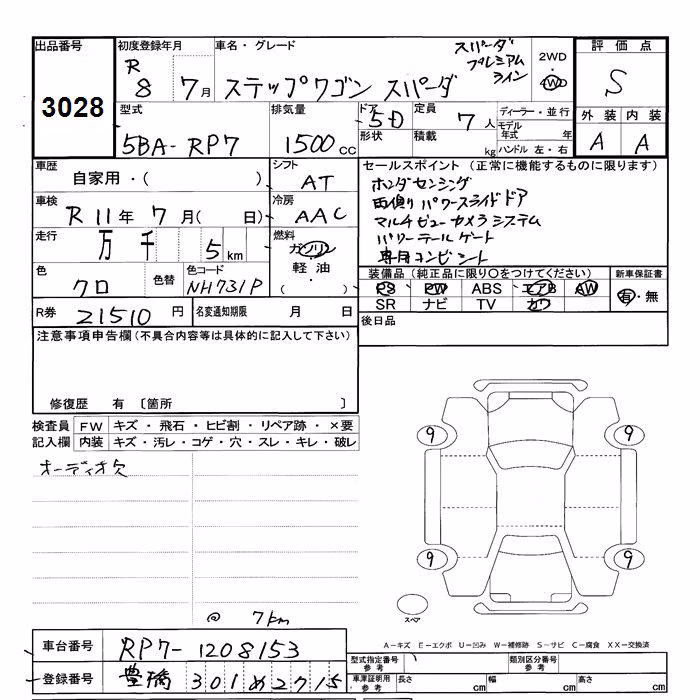 出品番号
3028
初度登録年月
R 8 7月
車名・グレード
ステップワゴン スパーダ
スパーダ
プレミアム
ライン
2WD
4WD
評価点
S
外装 内装
A A
型式
5BA-RP7
排気量
1500cc
ドア
5D
形状
定員
7人
積載
kg
ディーラー・並行
モデル年式 年
ハンドル 左・右
車歴
自家用・( )
シフト
AT
車検
R11年7月( 日)
冷房
AAC
走行
万 千 5km
燃料
ガソリン
軽油・
( )
色
クロ
色替
色コード
NH731P
R券
21510円
名変通知期限 月 日
セールスポイント(正常に機能するものに限ります)
ホンダセンシング
両側パワースライドドア
マルチビューカメラシステム
パワーテールゲート
専用コンビシート
装備品(純正品に限り○をつけてください)
PS PW ABS エアB AW
SR ナビ TV カワ
新車保証書
有・無
後日品
注意事項申告欄(不具合内容等は具体的に記入して下さい)
修復歴 有 〔箇所 〕
検査員記入欄
FW キズ・飛石・ヒビ割・リペア跡・×要
内装 キズ・汚レ・コゲ・穴・スレ・キレ・破レ
オーディオ欠
@ 7km
9 9
9 9
スペア
A-キズ E-エクボ U-凹み W-補修跡 S-サビ C-腐食 XX-交換済
車台番号
RP7-1208153
登録番号
豊橋 301 め 2715
型式指定番号
参考
類別区分番号
参考
車庫証明用
参考
長さ cm 幅 cm 高さ cm